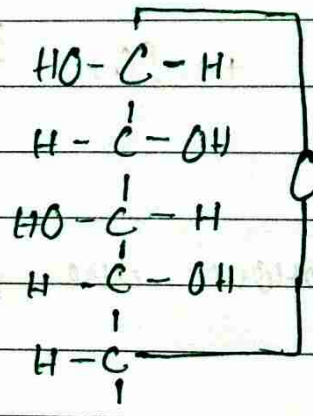 HO-C-H
H-C-OH
HO-C-H
O
H-C-OH
H-C